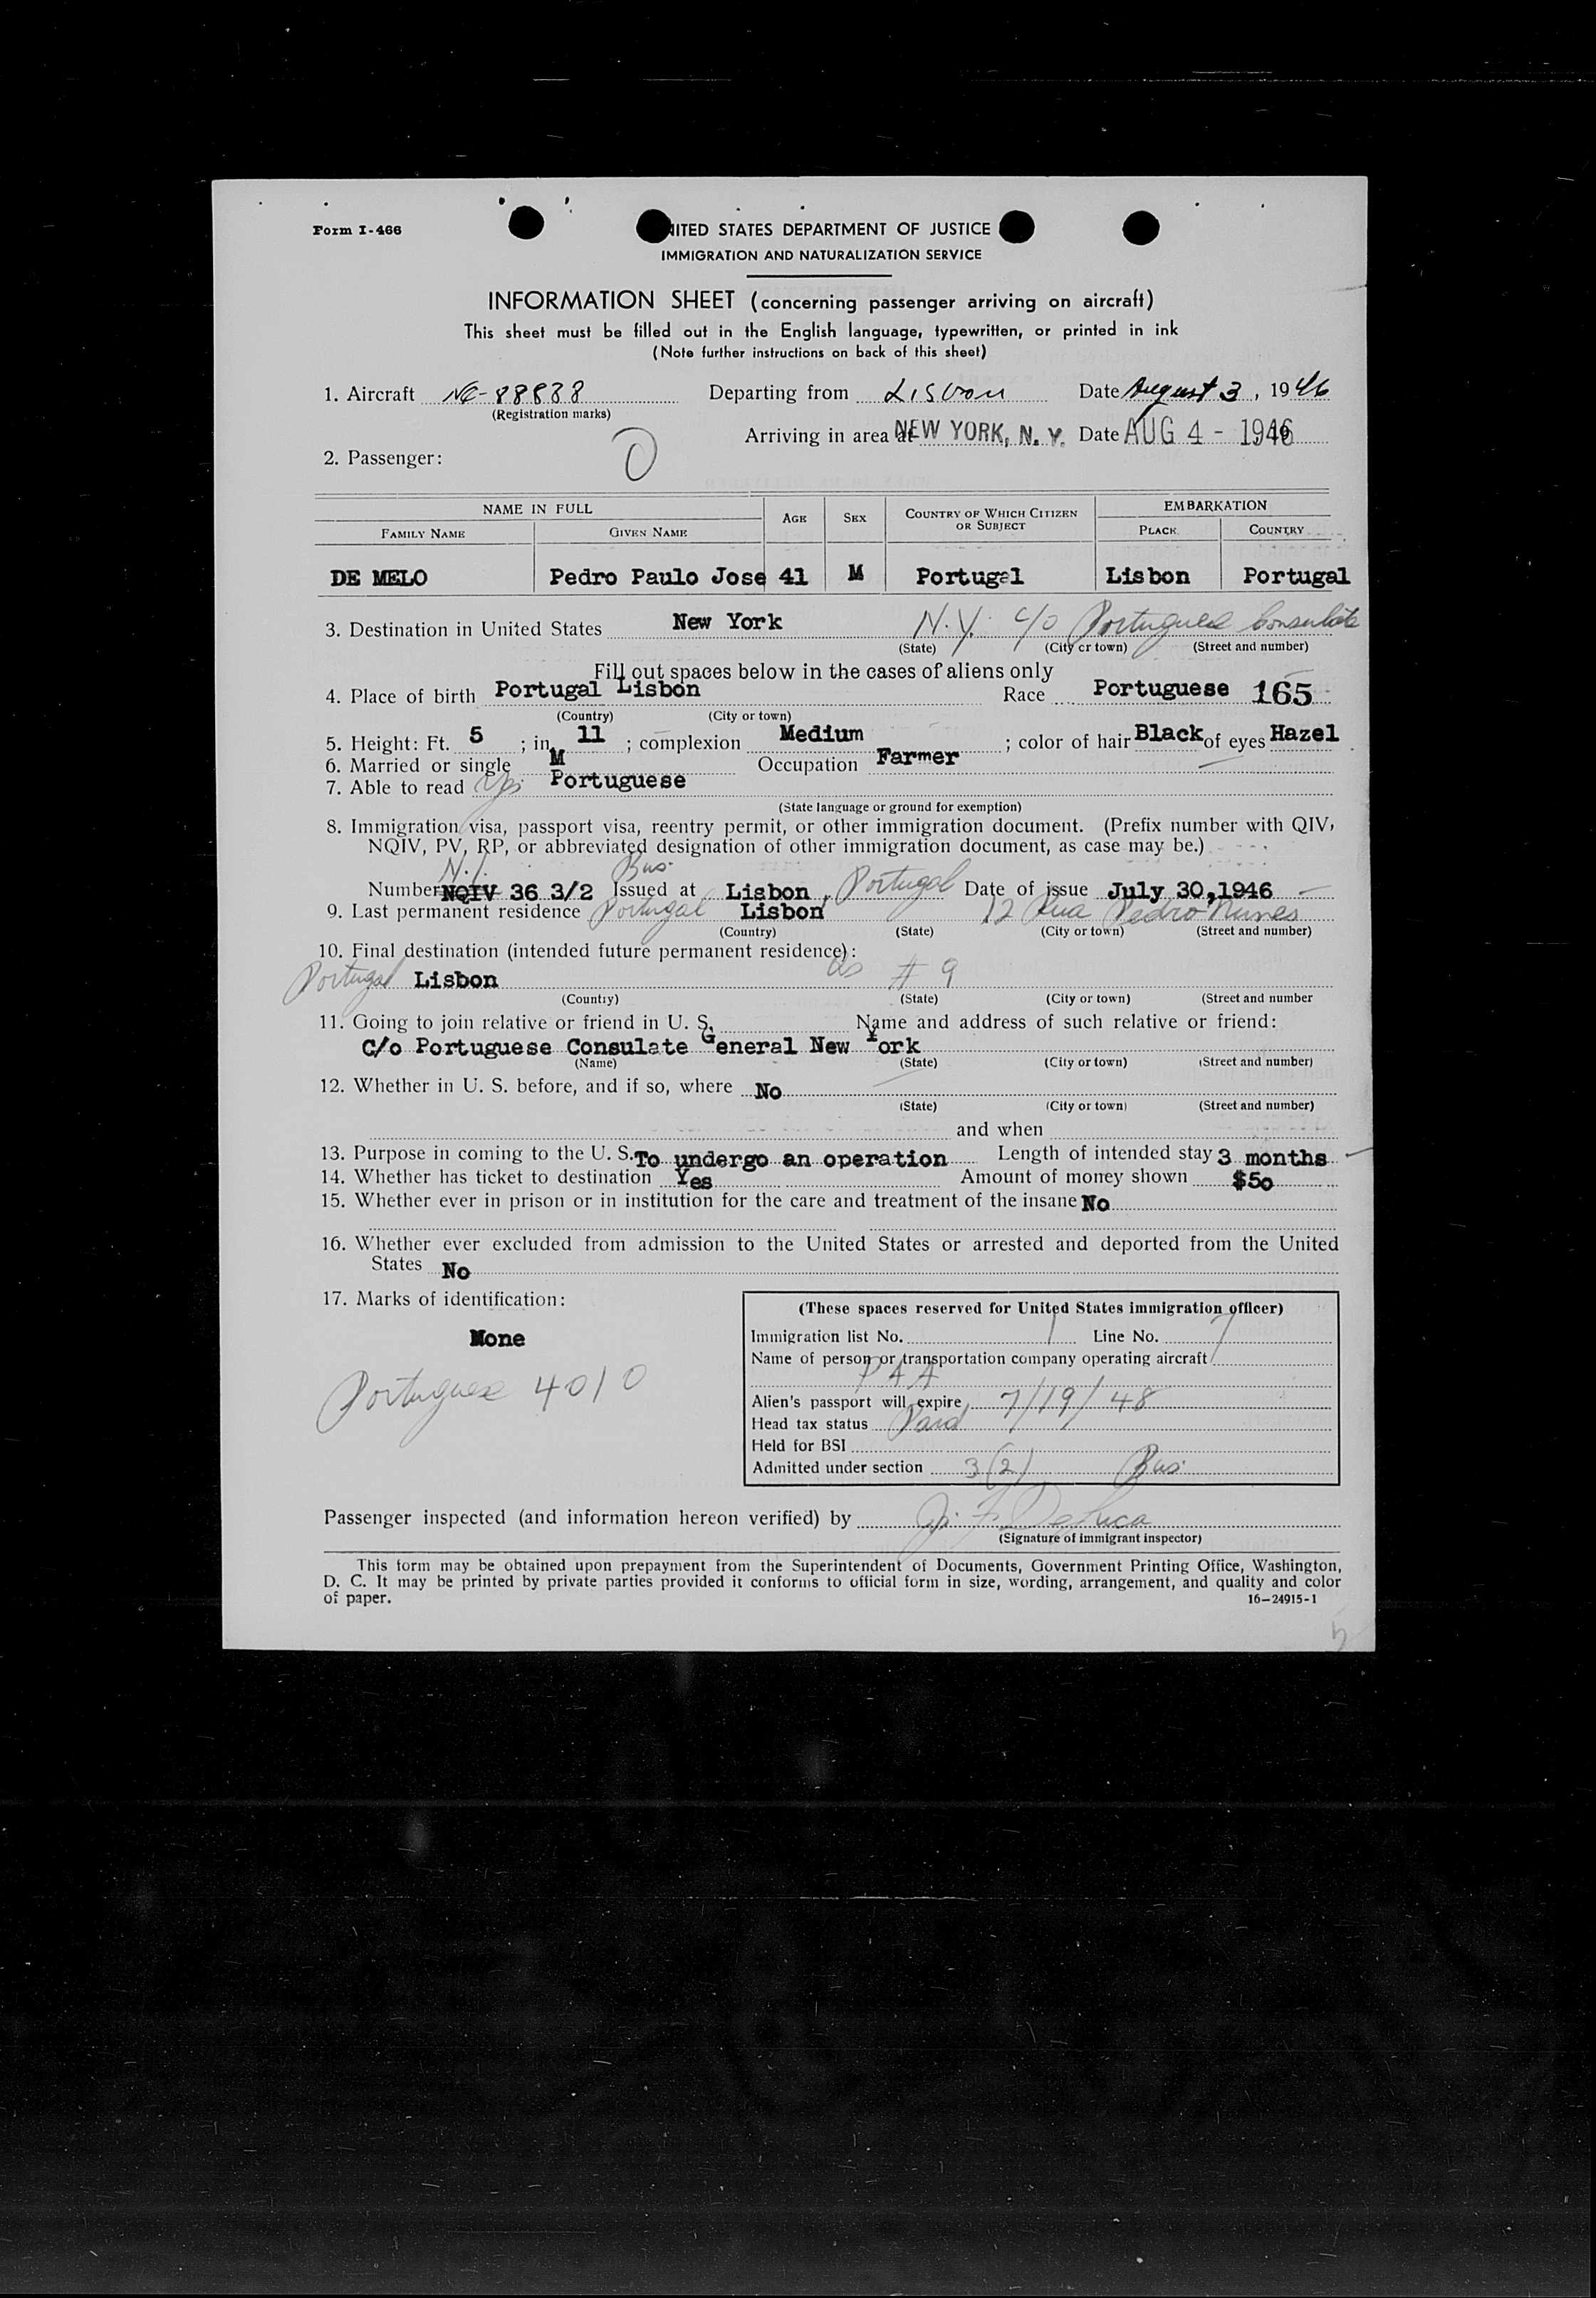 Form I-466
UNITED STATES DEPARTMENT OF JUSTICE
IMMIGRATION AND NATURALIZATION SERVICE
INFORMATION SHEET (concerning passenger arriving on aircraft)
This sheet must be filled out in the English language, typewritten, or printed in ink
(Note further instructions on back of this sheet)
1. Aircraft NC-88838 Departing from Lisbon Date August 3, 1946
(Registration marks)
Arriving in area at NEW YORK, N. Y. Date AUG 4 - 1946
2. Passenger: 0
NAME IN FULL AGE SEX COUNTRY OF WHICH CITIZEN OR SUBJECT EMBARKATION
FAMILY NAME GIVEN NAME PLACE COUNTRY
DE MELO Pedro Paulo Jose 41 M Portugal Lisbon Portugal
3. Destination in United States New York N.Y. c/o Portuguese Consulate
(State) (City or town) (Street and number)
Fill out spaces below in the cases of aliens only
4. Place of birth Portugal Lisbon Race Portuguese 165
(Country) (City or town)
5. Height: Ft. 5 ; in. 11 ; complexion Medium ; color of hair Black of eyes Hazel
6. Married or single M Occupation Farmer
7. Able to read Yes Portuguese
(State language or ground for exemption)
8. Immigration visa, passport visa, reentry permit, or other immigration document. (Prefix number with QIV,
NQIV, PV, RP, or abbreviated designation of other immigration document, as case may be.)
N.I. Bus.
Number NQIV 36 3/2 Issued at Lisbon, Portugal Date of issue July 30, 1946
9. Last permanent residence Portugal Lisbon 12 Rua Pedro Nunes
(Country) (State) (City or town) (Street and number)
10. Final destination (intended future permanent residence):
Portugal Lisbon as # 9
(Country) (State) (City or town) (Street and number
11. Going to join relative or friend in U. S. Name and address of such relative or friend:
C/o Portuguese Consulate General New York
(Name) (State) (City or town) (Street and number)
12. Whether in U. S. before, and if so, where No
(State) (City or town) (Street and number)
and when
13. Purpose in coming to the U. S. To undergo an operation Length of intended stay 3 months
14. Whether has ticket to destination Yes Amount of money shown $50
15. Whether ever in prison or in institution for the care and treatment of the insane No
16. Whether ever excluded from admission to the United States or arrested and deported from the United
States No
17. Marks of identification:
None
Portuguese 4010
(These spaces reserved for United States immigration officer)
Immigration list No. 1 Line No. 7
Name of person or transportation company operating aircraft
PAA
Alien's passport will expire 7/19/48
Head tax status Paid
Held for BSI
Admitted under section 3(2) Bus.
Passenger inspected (and information hereon verified) by J. F. DeLuca
(Signature of immigrant inspector)
This form may be obtained upon prepayment from the Superintendent of Documents, Government Printing Office, Washington,
D. C. It may be printed by private parties provided it conforms to official form in size, wording, arrangement, and quality and color
of paper. 16—24915-1